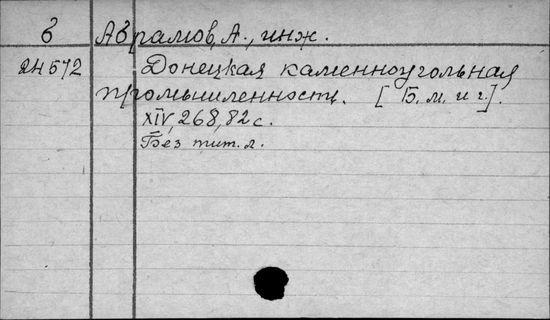 б Абрамов, А., инж.
2H572 Донецкая каменноугольная
промышленность. [Б. м. и г.].
XIV, 268, 82 с.
Без тит. л.